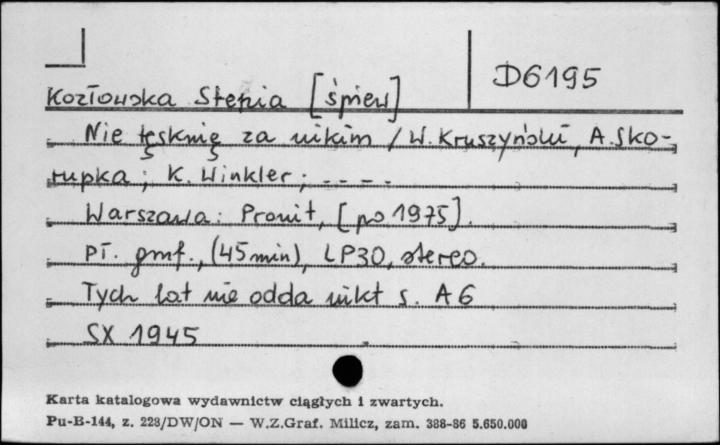 D6195
Kozłowska Stenia [śpiew]
Nie tęsknię za nikim / W. Kruszyński, A. Sko-
rupka ; K. Winkler ; - - - -
Warszawa : Pronit, [po 1975].
Pł. gmf., (45 min), LP30, stereo.
Tych lat nie odda nikt s. A6
SX 1945
Karta katalogowa wydawnictw ciągłych i zwartych.
Pu-B-144, z. 228/DW/ON — W.Z.Graf. Milicz, zam. 388-86 5.650.000